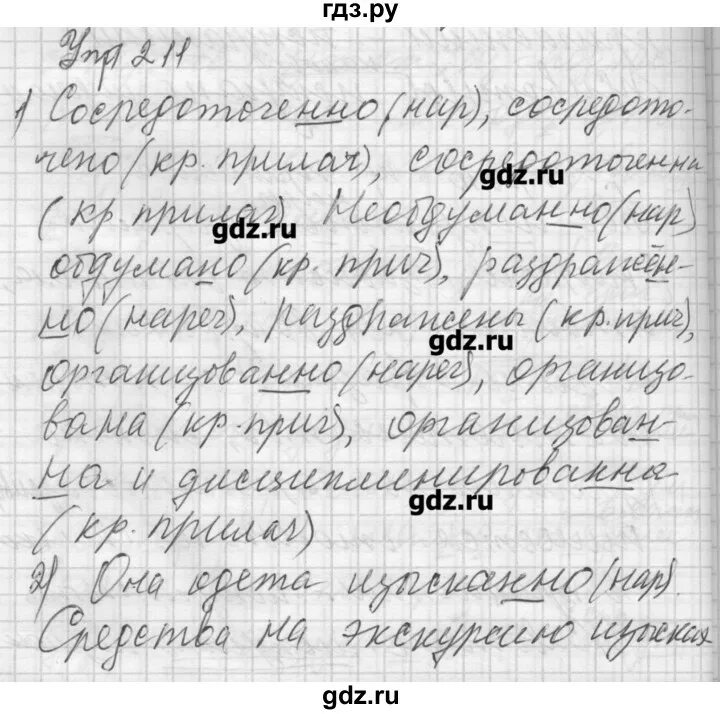 гдз.ру
Упр 211
1) Сосредоточенно (нар), сосредото-
чено (кр. прилаг), сосредоточенна
gdz.ru
(кр. прилаг) Необдуманно (нар)
gdz.ru
обдумано (кр. прич), раздражён-
но (нареч), раздражены (кр. прич),
gdz.ru
организованно (нареч), организо-
вана (кр. прич), организован-
на и дисциплинированна
gdz.ru
(кр. прилаг)
2) Она одета изысканно (нар).
Средства на экскурсию изыска
gdz.ru